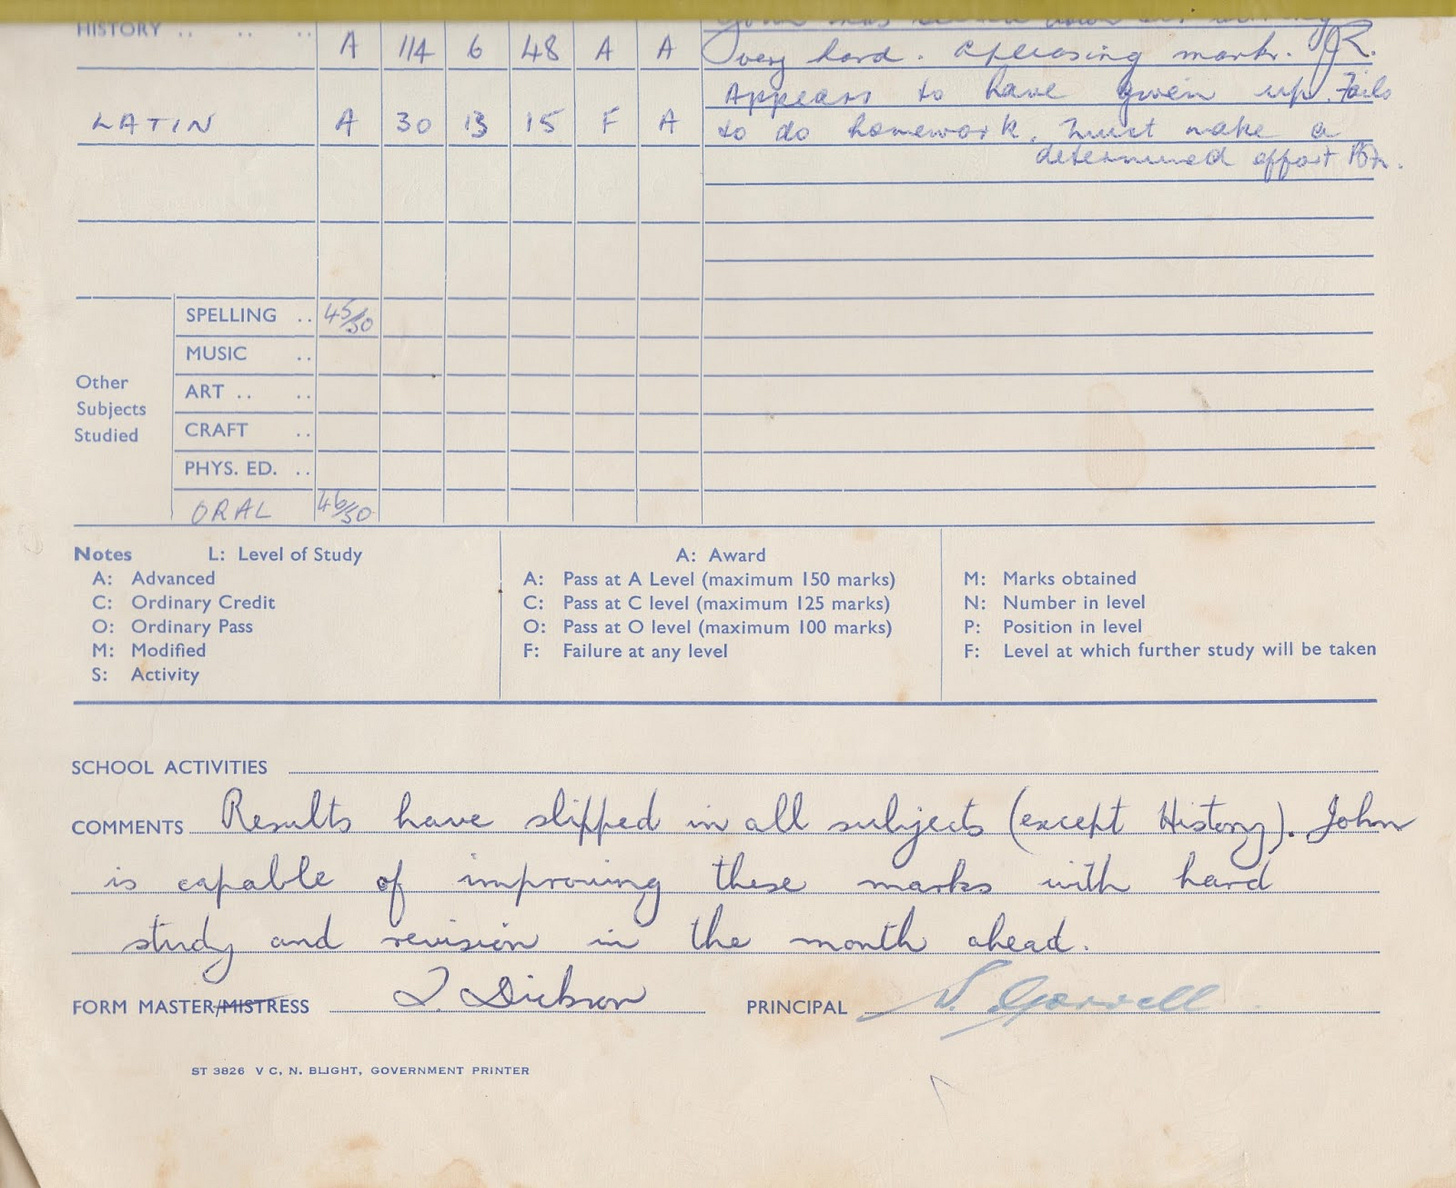 HISTORY .. .. .. A 114 6 48 A A very hard. A pleasing mark. JR.
Appears to have given up. Fails
LATIN A 30 13 15 F A to do homework. Must make a
determined effort
SPELLING .. 45/50
MUSIC ..
Other ART .. ..
Subjects
Studied CRAFT ..
PHYS. ED. ..
ORAL 46/50
Notes L: Level of Study A: Award
A: Advanced A: Pass at A Level (maximum 150 marks) M: Marks obtained
C: Ordinary Credit C: Pass at C level (maximum 125 marks) N: Number in level
O: Ordinary Pass O: Pass at O level (maximum 100 marks) P: Position in level
M: Modified F: Failure at any level F: Level at which further study will be taken
S: Activity
SCHOOL ACTIVITIES
COMMENTS Results have slipped in all subjects (except History). John
is capable of improving these marks with hard
study and revision in the month ahead.
FORM MASTER/MISTRESS J. Dickson PRINCIPAL
ST 3826 V C. N. BLIGHT, GOVERNMENT PRINTER